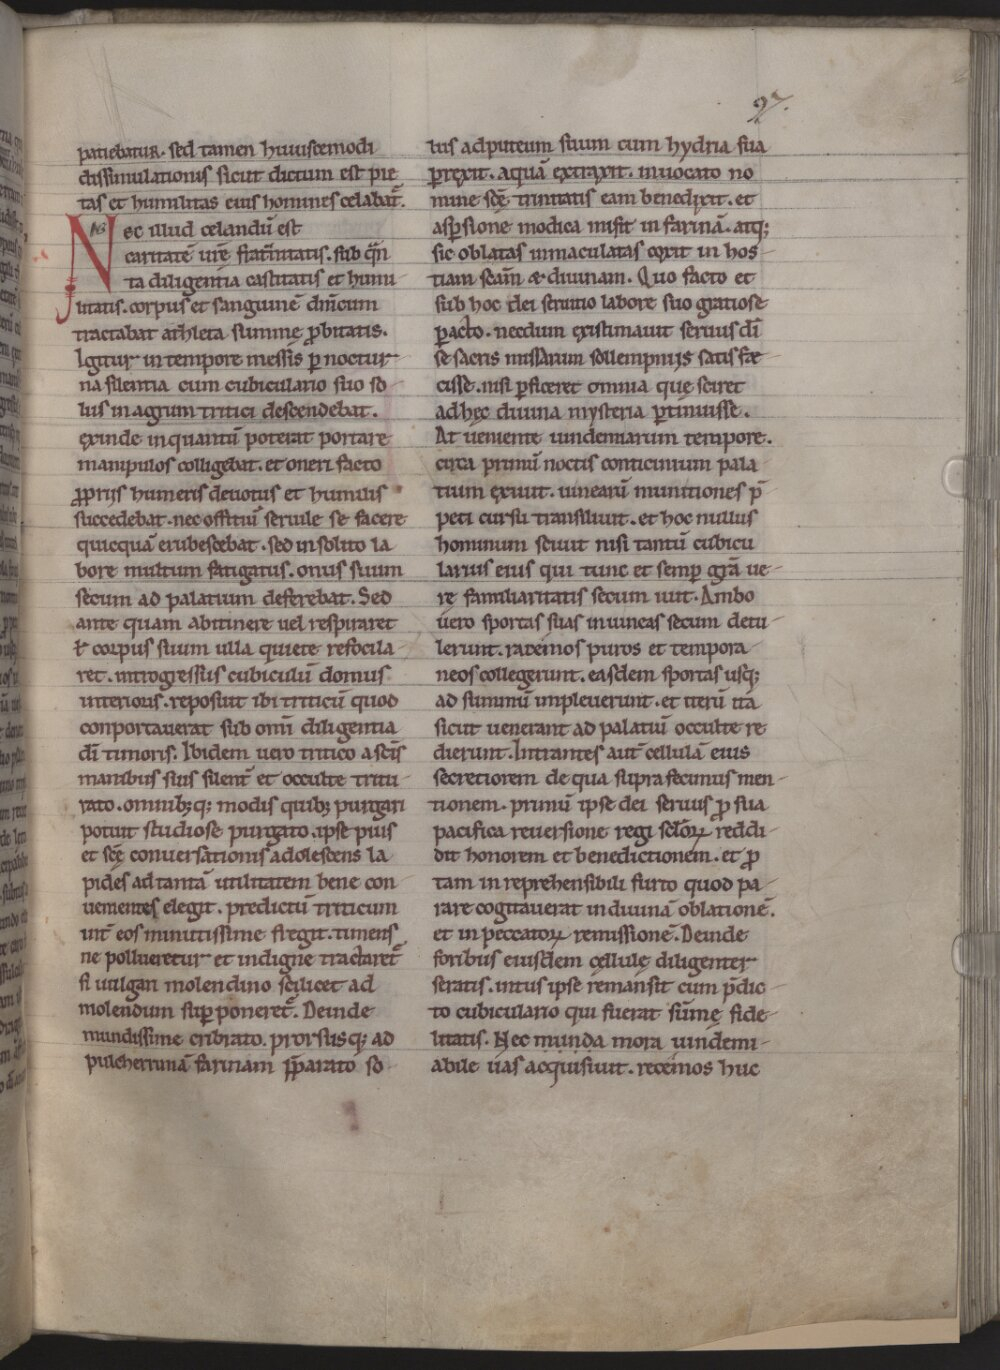 27.
patiebatur. sed tamen huiuscemodi
dissimulationis sicut dictum est pie
tas et humilitas eius homines celabat᷑.
Nec illud celandū est
caritatē ūr̄e frat̄nitatis. sub q̄n
ta diligentia castitatis et humi
litatis. corpus et sanguinē dn̄icum
tractabat athleta summe ꝓbitatis.
Igitur in tempore messis p̄ noctur
na silentia cum cubiculario suo so
lus in agrum tritici descendebat.
exinde inquantū poterat portare
manipulos colligebat. et oneri facto
ꝓprijs humeris deuotus et humilis
succedebat. nec offitiū seruile se facere
quicquā erubescebat. sed insolito la
bore multum fatigatus. onus suum
secum ad palatium deferebat. Sed
ante quam abstinere uel respiraret
ł corpus suum ulla quiete refocila
ret. introgressus cubiculū domus
interioris. reposuit ibi triticū quod
conportauerat sub om̄i diligentia
dī timoris. Ibidem uero tritico a sc̄is
manibus suis silent᷑ et occulte tritu
rato. omnibꝫqꝫ modis quibꝫ purgari
potuit studiose purgato. ipse pius
et sc̄ę conuersationis adolescens la
pides ad tantā utilitatem bene con
uenientes elegit. predictū triticum
int̄ eos minutissime fregit. timens
ne pollueretur et indigne tractaret᷑
si uulgari molendino scilicet ad
molendum sup̄poneret᷑. Deinde
mundissime cribrato. prorsusqꝫ ad
pulcherrimā farinam p̄parato so
lus ad puteum suum cum hydria sua
ꝑrexit. aquā extraxit. inuocato no
mine sc̄ę trinitatis eam benedixit. et
asꝑsione modica misit in farinā. atqꝫ
sic oblatas inmaculatas coxit in hos
tiam sc̄am & diuinam. Quo facto et
sub hoc dei seruitio labore suo gratiose
ꝑacto. necdum existimauit seruus dī
se sacris missarum sollempnijs satis fæ
cisse. nisi ꝑficeret omnia quę sciret
ad hęc diuina mysteria ꝑtinuisse.
At ueniente uindemiarum tempore.
circa primū noctis conticinium pala
tium exiuit. uinearū munitiones p̄
peti cursu transiliuit. et hoc nullus
hominum sciuit nisi tantū cubicu
larius eius qui tunc et semꝑ gr̄a ue
re familiaritatis secum iuit. Ambo
uero sportas suas in uineas secum detu
lerunt. racemos puros et tempora
neos collegerunt. easdem sportas usqꝫ
ad summū impleuerunt. et iterū ita
sicut uenerant ad palatiū occulte re
dierunt. Intrantes aut̄ cellulā eius
secretiorem de qua supra fecimus men
tionem. primū ipse dei seruus ꝓ sua
pacifica reuersione regi sc̄loꝝ reddi
dit honorem et benedictionem. et ꝓ
tam inreprehensibili furto quod pa
rare cogitauerat in diuinā oblationē.
et in peccatoꝝ remissionē. Deinde
foribus eiusdem cellule diligenter
seratis. intus ipse remansit cum p̄dic
to cubiculario qui fuerat sūme fide
litatis. Nec munda mora uindemi
abile uas acquisiuit. racemos huc